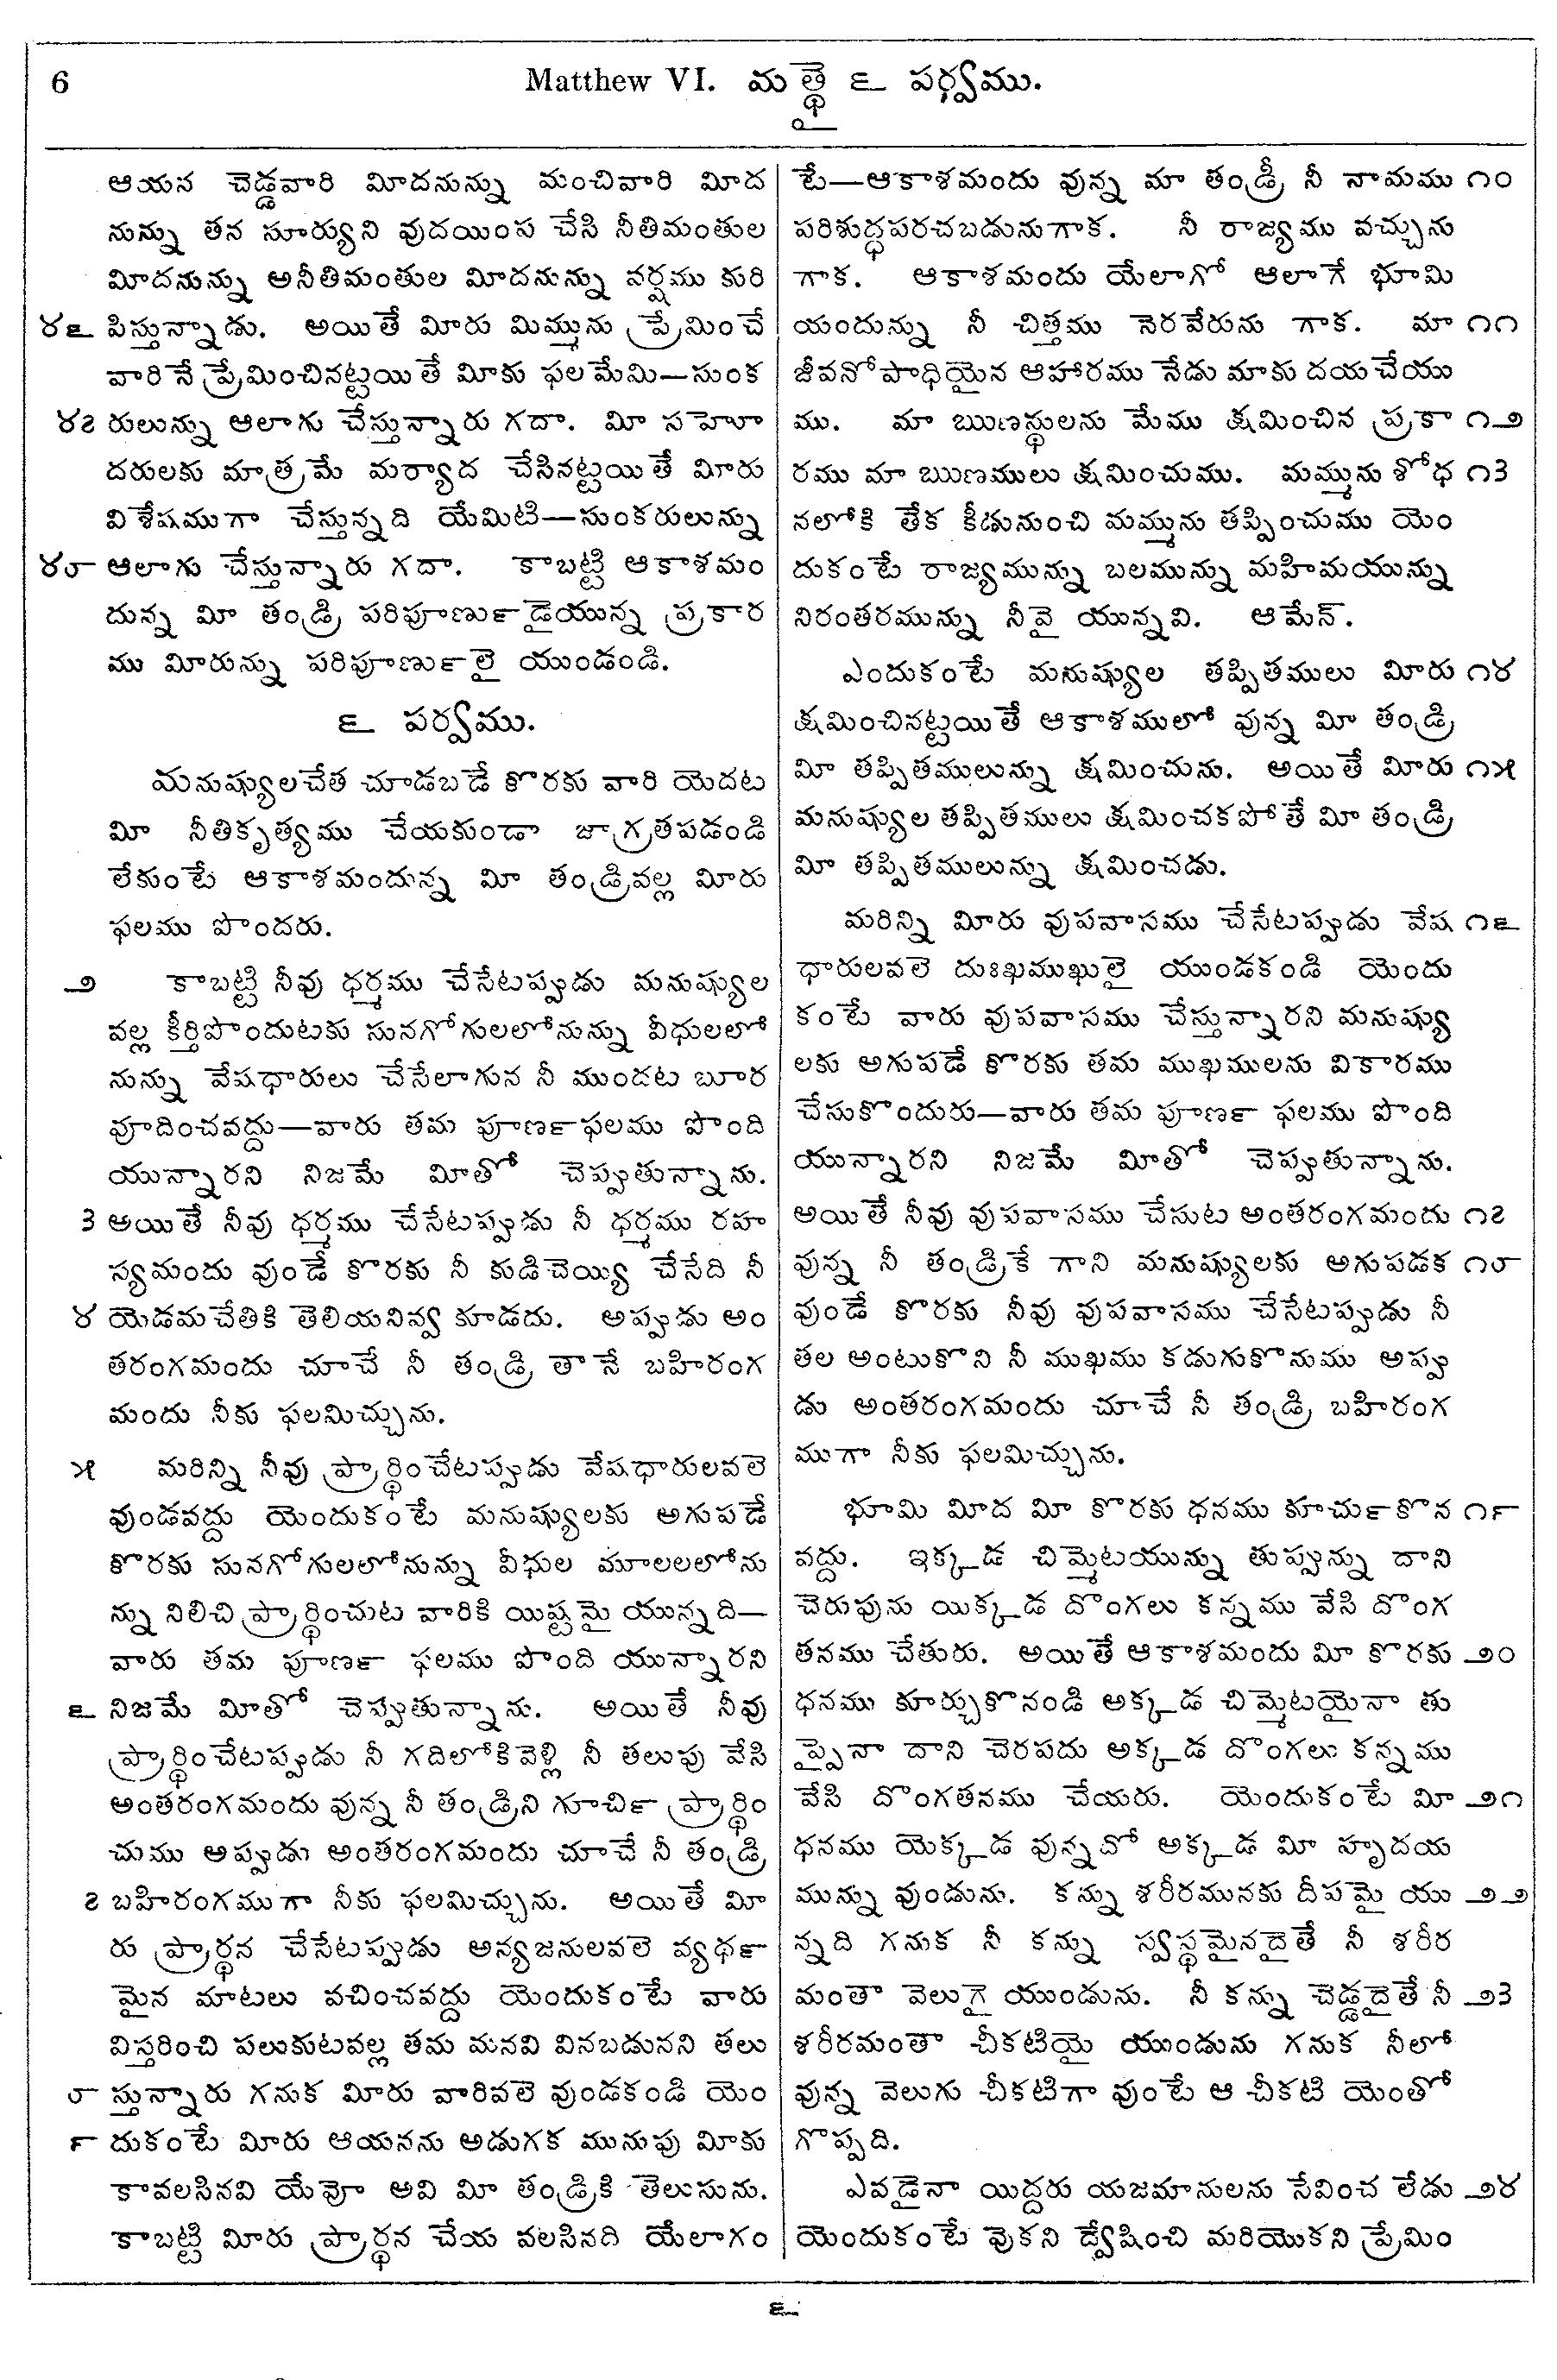 6
Matthew VI. మత్థై ౬ పర్వము.
ఆయన చెడ్డవారి మీదనున్ను మంచివారి మీద
నున్ను తన సూర్యుని వుదయింప చేసి నీతిమంతుల
మీదనున్ను అనీతిమంతుల మీదనున్ను వర్షము కురి
౪౬ పిస్తున్నాడు. అయితే మీరు మిమ్మును ప్రేమించే
వారినే ప్రేమించినట్టయితే మీకు ఫలమేమి—సుంక
౪౭ రులున్ను ఆలాగు చేస్తున్నారు గదా. మీ సహో
దరులకు మాత్రమే మర్యాద చేసినట్టయితే మీరు
విశేషముగా చేస్తున్నది యేమిటి—సుంకరులున్ను
౪౮ ఆలాగు చేస్తున్నారు గదా. కాబట్టి ఆకాశమం
దున్న మీ తండ్రి పరిపూణు౯డైయున్న ప్రకార
ము మీరున్ను పరిపూణు౯లై యుండండి.
౬ పర్వము.
మనుష్యులచేత చూడబడే కొరకు వారి యెదట
మీ నీతికృత్యము చేయకుండా జాగ్రతపడండి
లేకుంటే ఆకాశమందున్న మీ తండ్రివల్ల మీరు
ఫలము పొందరు.
౨ కాబట్టి నీవు ధర్మము చేసేటప్పుడు మనుష్యుల
వల్ల కీర్తిపొందుటకు సునగోగులలోనున్ను వీధులలో
నున్ను వేషధారులు చేసేలాగున నీ ముందట బూర
వూదించవద్దు—వారు తమ పూణ౯ఫలము పొంది
యున్నారని నిజమే మీతో చెప్పుతున్నాను.
౩ అయితే నీవు ధర్మము చేసేటప్పుడు నీ ధర్మము రహ
స్యమందు వుండే కొరకు నీ కుడిచెయ్యి చేసేది నీ
౪ యెడమచేతికి తెలియనివ్వ కూడదు. అప్పుడు అం
తరంగమందు చూచే నీ తండ్రి తానే బహిరంగ
మందు నీకు ఫలమిచ్చును.
౫ మరిన్ని నీవు ప్రార్థించేటప్పుడు వేషధారులవలె
వుండవద్దు యెందుకంటే మనుష్యులకు అగుపడే
కొరకు సునగోగులలోనున్ను వీధుల మూలలలోను
న్ను నిలిచి ప్రార్థించుట వారికి యిష్టమై యున్నది—
వారు తమ పూణ౯ ఫలము పొంది యున్నారని
౬ నిజమే మీతో చెప్పుతున్నాను. అయితే నీవు
ప్రార్థించేటప్పుడు నీ గదిలోకివెళ్లి నీ తలుపు వేసి
అంతరంగమందు వున్న నీ తండ్రిని గూచి౯ ప్రార్థిం
చుము అప్పుడు అంతరంగమందు చూచే నీ తండ్రి
౭ బహిరంగముగా నీకు ఫలమిచ్చును. అయితే మీ
రు ప్రార్థన చేసేటప్పుడు అన్యజనులవలె వ్యథ౯
మైన మాటలు వచించవద్దు యెందుకంటే వారు
విస్తరించి పలుకుటవల్ల తమ మనవి వినబడునని తలు
౮ స్తున్నారు గనుక మీరు వారివలె వుండకండి యెం
౯ దుకంటే మీరు ఆయనను అడుగక మునుపు మీకు
కావలసినవి యేవో అవి మీ తండ్రికి తెలుసును.
కాబట్టి మీరు ప్రార్థన చేయ వలసినది యేలాగం
టే—ఆకాశమందు వున్న మా తండ్రీ నీ నామము ౧౦
పరిశుద్ధపరచబడునుగాక. నీ రాజ్యము వచ్చును
గాక. ఆకాశమందు యేలాగో ఆలాగే భూమి
యందున్ను నీ చిత్తము నెరవేరును గాక. మా ౧౧
జీవనోపాధియైన ఆహారము నేడు మాకు దయచేయు
ము. మా ఋణస్థులను మేము క్షమించిన ప్రకా ౧౨
రము మా ఋణములు క్షమించుము. మమ్మును శోధ ౧౩
నలోకి తేక కీడునుంచి మమ్మును తప్పించుము యెం
దుకంటే రాజ్యమున్ను బలమున్ను మహిమయున్ను
నిరంతరమున్ను నీవై యున్నవి. ఆమేన్.
ఎందుకంటే మనుష్యుల తప్పితములు మీరు ౧౪
క్షమించినట్టయితే ఆకాశములో వున్న మీ తండ్రి
మీ తప్పితములున్ను క్షమించును. అయితే మీరు ౧౫
మనుష్యుల తప్పితములు క్షమించకపోతే మీ తండ్రి
మీ తప్పితములున్ను క్షమించడు.
మరిన్ని మీరు వుపవాసము చేసేటప్పుడు వేష ౧౬
ధారులవలె దుఃఖముఖులై యుండకండి యెందు
కంటే వారు వుపవాసము చేస్తున్నారని మనుష్యు
లకు అగుపడే కొరకు తమ ముఖములను వికారము
చేసుకొందురు—వారు తమ పూణ౯ ఫలము పొంది
యున్నారని నిజమే మీతో చెప్పుతున్నాను.
అయితే నీవు వుపవాసము చేసుట అంతరంగమందు ౧౭
వున్న నీ తండ్రికే గాని మనుష్యులకు అగుపడక ౧౮
వుండే కొరకు నీవు వుపవాసము చేసేటప్పుడు నీ
తల అంటుకొని నీ ముఖము కడుగుకొనుము అప్పు
డు అంతరంగమందు చూచే నీ తండ్రి బహిరంగ
ముగా నీకు ఫలమిచ్చును.
భూమి మీద మీ కొరకు ధనము కూచు౯కొన ౧౯
వద్దు. ఇక్కడ చిమ్మెటయున్ను తుప్పున్ను దాని
చెరుపును యిక్కడ దొంగలు కన్నము వేసి దొంగ
తనము చేతురు. అయితే ఆకాశమందు మీ కొరకు ౨౦
ధనము కూర్చుకొనండి అక్కడ చిమ్మెటయైనా తు
ప్పైనా దాని చెరపదు అక్కడ దొంగలు కన్నము
వేసి దొంగతనము చేయరు. యెందుకంటే మీ ౨౧
ధనము యెక్కడ వున్నదో అక్కడ మీ హృదయ
మున్ను వుండును. కన్ను శరీరమునకు దీపమై యు ౨౨
న్నది గనుక నీ కన్ను స్వస్థమైనదైతే నీ శరీర
మంతా వెలుగై యుండును. నీ కన్ను చెడ్డదైతే నీ ౨౩
శరీరమంతా చీకటియై యుండును గనుక నీలో
వున్న వెలుగు చీకటిగా వుంటే ఆ చీకటి యెంతో
గొప్పది.
ఎవడైనా యిద్దరు యజమానులను సేవించ లేడు ౨౪
యెందుకంటే వొకని ద్వేషించి మరియొకని ప్రేమిం
౬